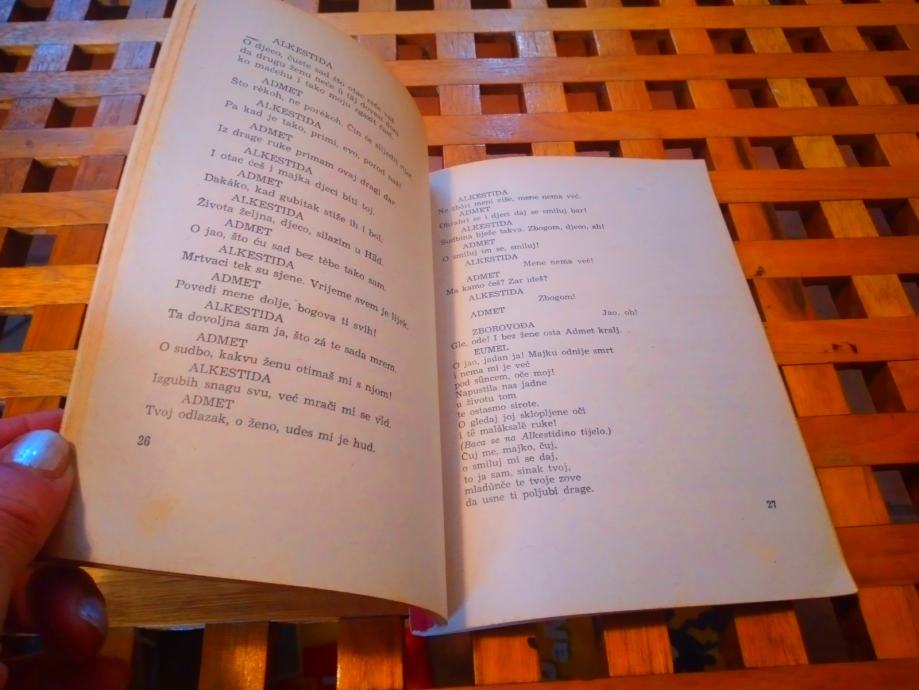 ALKESTIDA
O djeco, čuste sad što otac reče vaš
da drugu ženu neće u taj dovest dom
ko maćehu i tako moju zgazit čast.
ADMET
Što rèkoh, ne porèkoh. Čin će slijedit riječ.
ALKESTIDA
Pa kad je tako, primi, evo, porod naš!
ADMET
Iz drage ruke primam ovaj dragi dar.
ALKESTIDA
I otac ćeš i majka djeci biti toj.
ADMET
Dakáko, kad gubitak stiže ih i bol.
ALKESTIDA
Života željna, djeco, silazim u Hȃd.
ADMET
O jao, što ću sad bez tèbe tako sam.
ALKESTIDA
Mrtvaci tek su sjene. Vrijeme svem je lijek.
ADMET
Povedi mene dolje, bogova ti svih!
ALKESTIDA
Ta dovoljna sam ja, što zá te sada mrem.
ADMET
O sudbo, kakvu ženu otimaš mi s njom!
ALKESTIDA
Izgubih snagu svu, već mrači mi se vȋd.
ADMET
Tvoj odlazak, o ženo, udes mi je hud.
26
ALKESTIDA
Ne zbori meni više, mene nema već.
ADMET
Ohrabri se i djeci daj se smiluj, bar!
ALKESTIDA
Sudbina bješe takva. Zbogom, djeco, ah!
ADMET
O smiluj im se, smiluj!
ALKESTIDA
Mene nema već!
ADMET
Ma kamo ćeš? Zar ideš?
ALKESTIDA
Zbogom!
ADMET
Jao, oh!
ZBOROVOĐA
Gle, ode! I bez žene osta Admet kralj.
EUMEL
O jao, jadan ja! Majku odnije smrt
i nema mi je već
pod sûncem, oče moj!
Napustila nas jadne
u životu tom
te ostasmo sirote.
O gledaj joj sklopljene oči
i tè malàksalē ruke!
(Baca se na Alkestidino tijelo.)
Čuj me, majko, čuj,
o smiluj mi se daj,
to ja sam, sinak tvoj,
mladûnče te tvoje zove
da usne ti poljubi drage.
27